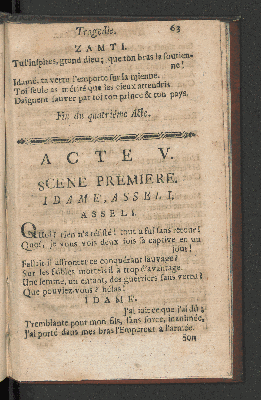 Tragedie. 63
ZAMTI.
Tu l'inspires, grand dieu; que ton bras la soutien-
ne!
Idamé, ta vertu l'emporte sur la mienne.
Toi seule as mérité que les cieux attendris
Daignent sauver par toi ton prince & ton pays.
Fin du quatrième Acte.
ACTE V.
SCENE PREMIERE.
IDAME, ASSELI.
ASSELI.
Quoi! rien n'a résisté! tout a fui sans retour!
Quoi, je vous vois deux fois sa captive en un
jour!
Fallait-il affronter ce conquérant sauvage?
Sur les faibles mortels il a trop d'avantage.
Une femme, un enfant, des guerriers sans vertu!
Que pouviez-vous? hélas!
IDAME.
J'ai fait ce que j'ai dû;
Tremblante pour mon fils, sans force, inanimée,
J'ai porté dans mes bras l'Empereur à l'armée.
Son